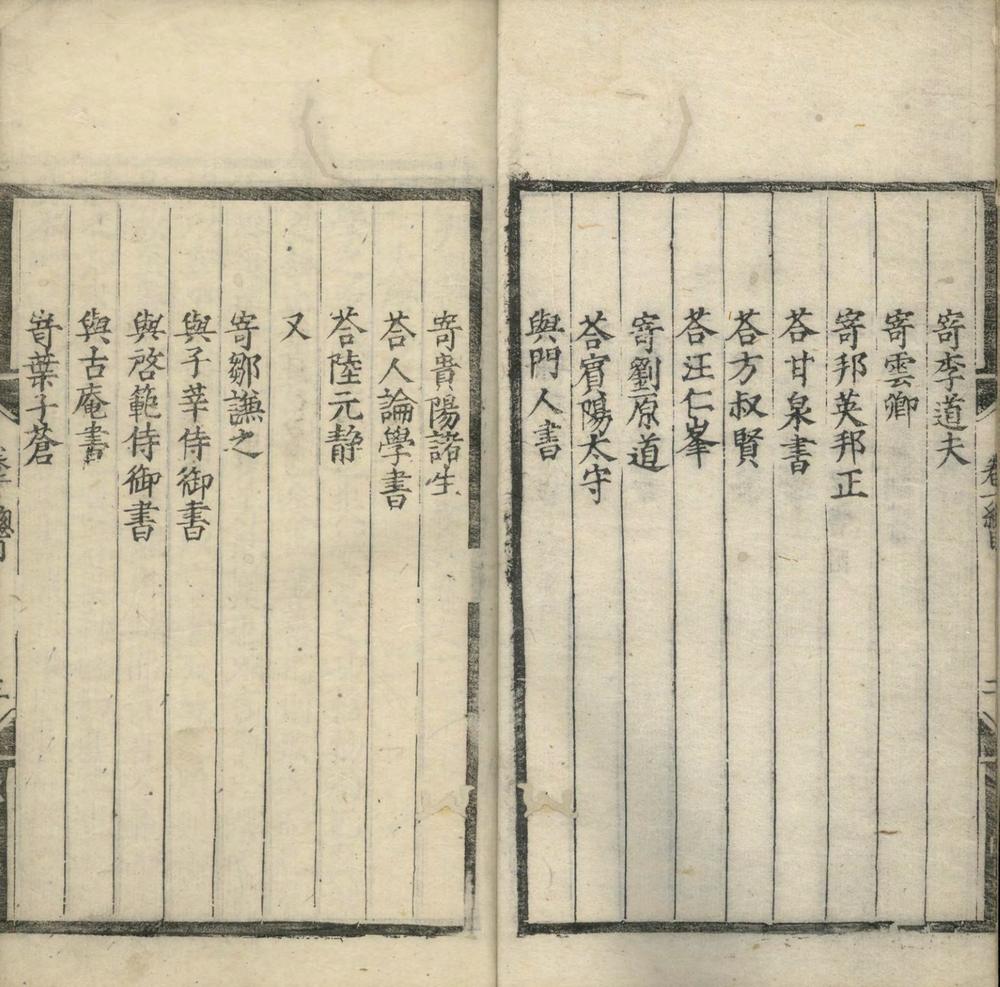 寄李道夫
寄雲卿
寄邦英邦正
荅甘泉書
荅方叔賢
荅汪仁峯
寄劉原道
荅賓陽太守
與門人書
寄貴陽諸生
荅人論學書
荅陸元静
又
寄鄒謙之
與子莘侍御書
與啓範侍御書
與古庵書
寄葉子蒼